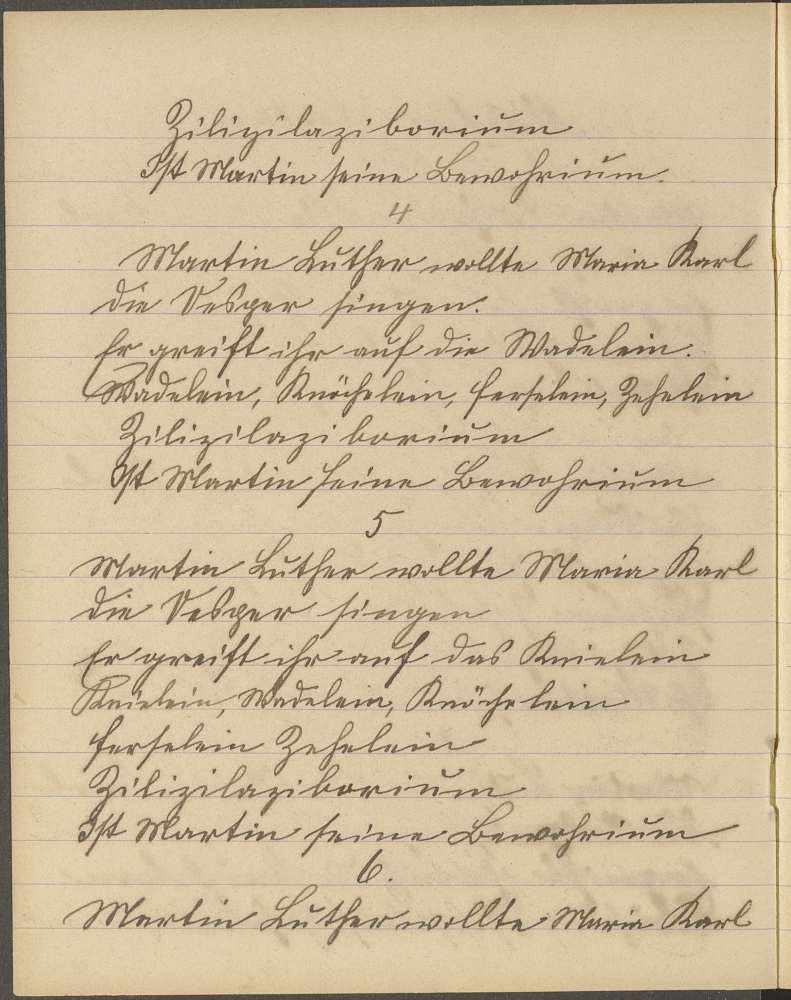 Zilizilaziborium
Ist Martin seine Bewohrium.
4
Martin Luther wollte Maria Karl
die Vesper singen.
Er greift ihr auf die Wadelein.
Wadelein, Knöchelein, Ferselein, Zehelein
Zilizilaziborium
Ist Martin seine Bewohrium
5
Martin Luther wollte Maria Karl
die Vesper singen
Er greift ihr auf das Knielein
Knielein, Wadelein, Knöchelein
Ferselein Zehelein
Zilizilaziborium
Ist Martin seine Bewohrium
6.
Martin Luther wollte Maria Karl